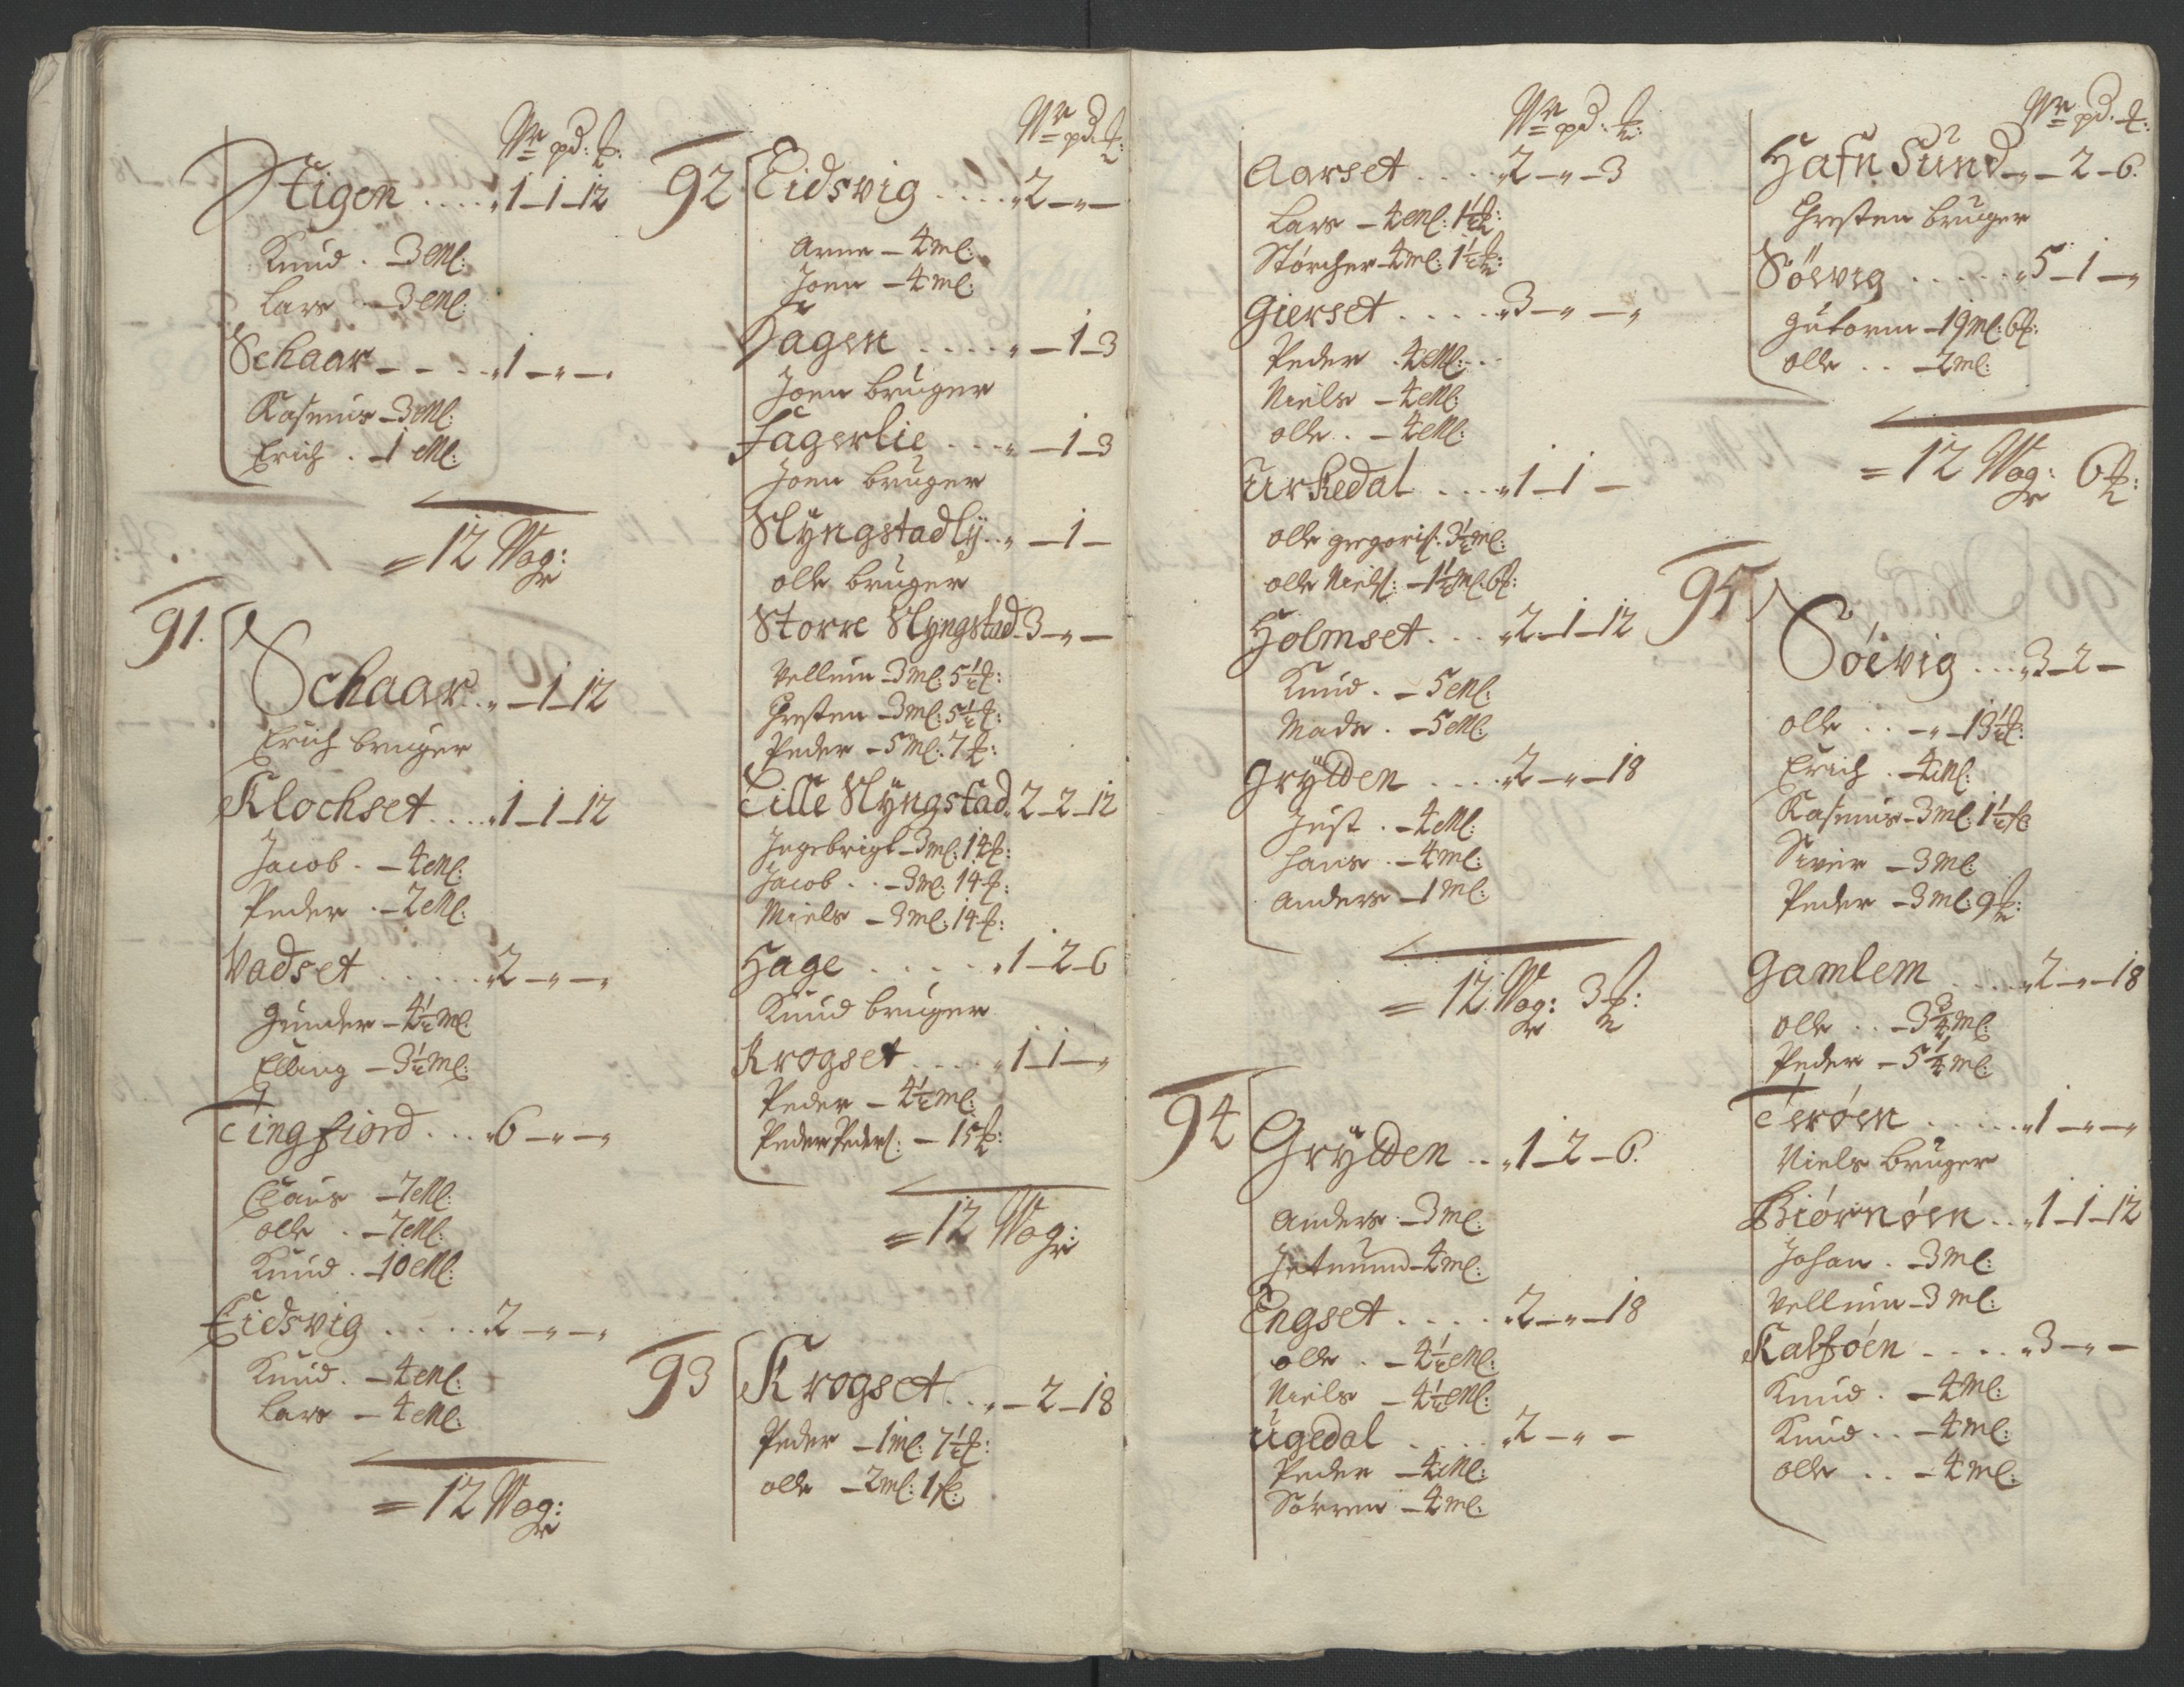 Wr pd: £:
Stigen .... „1-1-12
Knud . - 3 Ml:
Lars - 3 Ml:
Schaar - - - „1-„-
Rasmus - 3 Ml:
Erich . - 1 Ml:
= 12 Wog:
91.
Schaar . „-1-12
Erich bruger
Klochset .... „1-1-12
Jacob . - 4 Ml:
Peder . - 2 Ml:
Vadset ...... „2-„-„
Gunder - 4½ Ml:
Elling - 3½ Ml:
Tingfiord ... „6-„-„
Claus - 7 Ml:
olle . - 7 Ml:
Knud . - 10 Ml:
Eidsvig ..... 2-„-„
Knud . - 4 Ml:
Lars - 4 Ml:
= 12 Wog:
Wr pd. £:
92 Eidsvig .... „2-„-
Arne - 4 Ml:
Joen - 4 Ml:
Hagen ..... „-1-3
Joen bruger
Fagerlie .... „-1-3
Joen bruger
Slÿngstadlij .. „-1-
olle bruger
Storre Slyngstad. 3-„-
Vellum - 3 Ml: 5½ £:
Chresten - 3 Ml: 5½ £:
Peder - 5 Ml: 7 £:
Lille Slÿngstad. 2-2-12
Ingebrigt - 3 Ml: 14 £:
Jacob . . - 3 Ml: 14 £:
Niels - 3 Ml: 14 £:
Hage ..... „1-2-6
Knud bruger
Krogset .... „1-1-„
Peder - 4½ Ml:
Peder Peders: - 15 £:
= 12 Wog:
93 Krogset . . „-2-18
Peder - 1 Ml: 7½ £:
olle - 2 Ml: 1 £:
Wr pd: £:
Aarset .... „2-„-3
Lars - 4 Ml: 1½ £:
Störcher - 4 Ml: 1½ £:
Gierset .... „3-„-„
Peder . 4 Ml: . .
Niels - 4 Ml:
olle . - 4 Ml:
Urkedal .... „1-1-
olle gregoris: 3½ Ml:
olle Niels: - 1½ Ml: 6 £:
Holmset ... „2-1-12
Knud . - 5 Ml:
Mads . - 5 Ml:
Grÿtten .... 2-„-18
Just . - 4 Ml:
hans . - 4 Ml:
Anders - 1 Ml:
= 12 Wog: 3 £:
94 Grÿtten . . „1-2-6.
Anders - 3 Ml:
Jetmund - 4 Ml:
Engset .... „2-„-18
olle . - 4½ Ml:
Niels - 4½ Ml:
Ugedal .... „2-„-
Peder - 4 Ml:
Sörren - 4 Ml:
Wr pd. £:
Hafn Sund „-2-6.
Chresten bruger
Söevig ...... „5-1-„
Gutorm - 19 Ml: 6 £:
olle . . - 2 Ml:
= 12 Wog: 6 £:
95
Söevig ... „3-2-
olle . . -„- 13½ £:
Erich . - 4 Ml:
Rasmus - 3 Ml: 1½ £:
Siver - 3 Ml:
Peder - 3 Ml: 9 £:
Gamlem .... „2-„-18
olle . . - 3¾ Ml:
Peder - 5¼ Ml:
Teröen ..... „1-„-„
Niels bruger
Biörnöen .. „1-1-12
Johan . - 3 Ml:
Vellum - 3 Ml:
Kalföen .... „3-„-
Knud . - 4 Ml:
Knud . . - 4 Ml:
olle . . - 4 Ml: